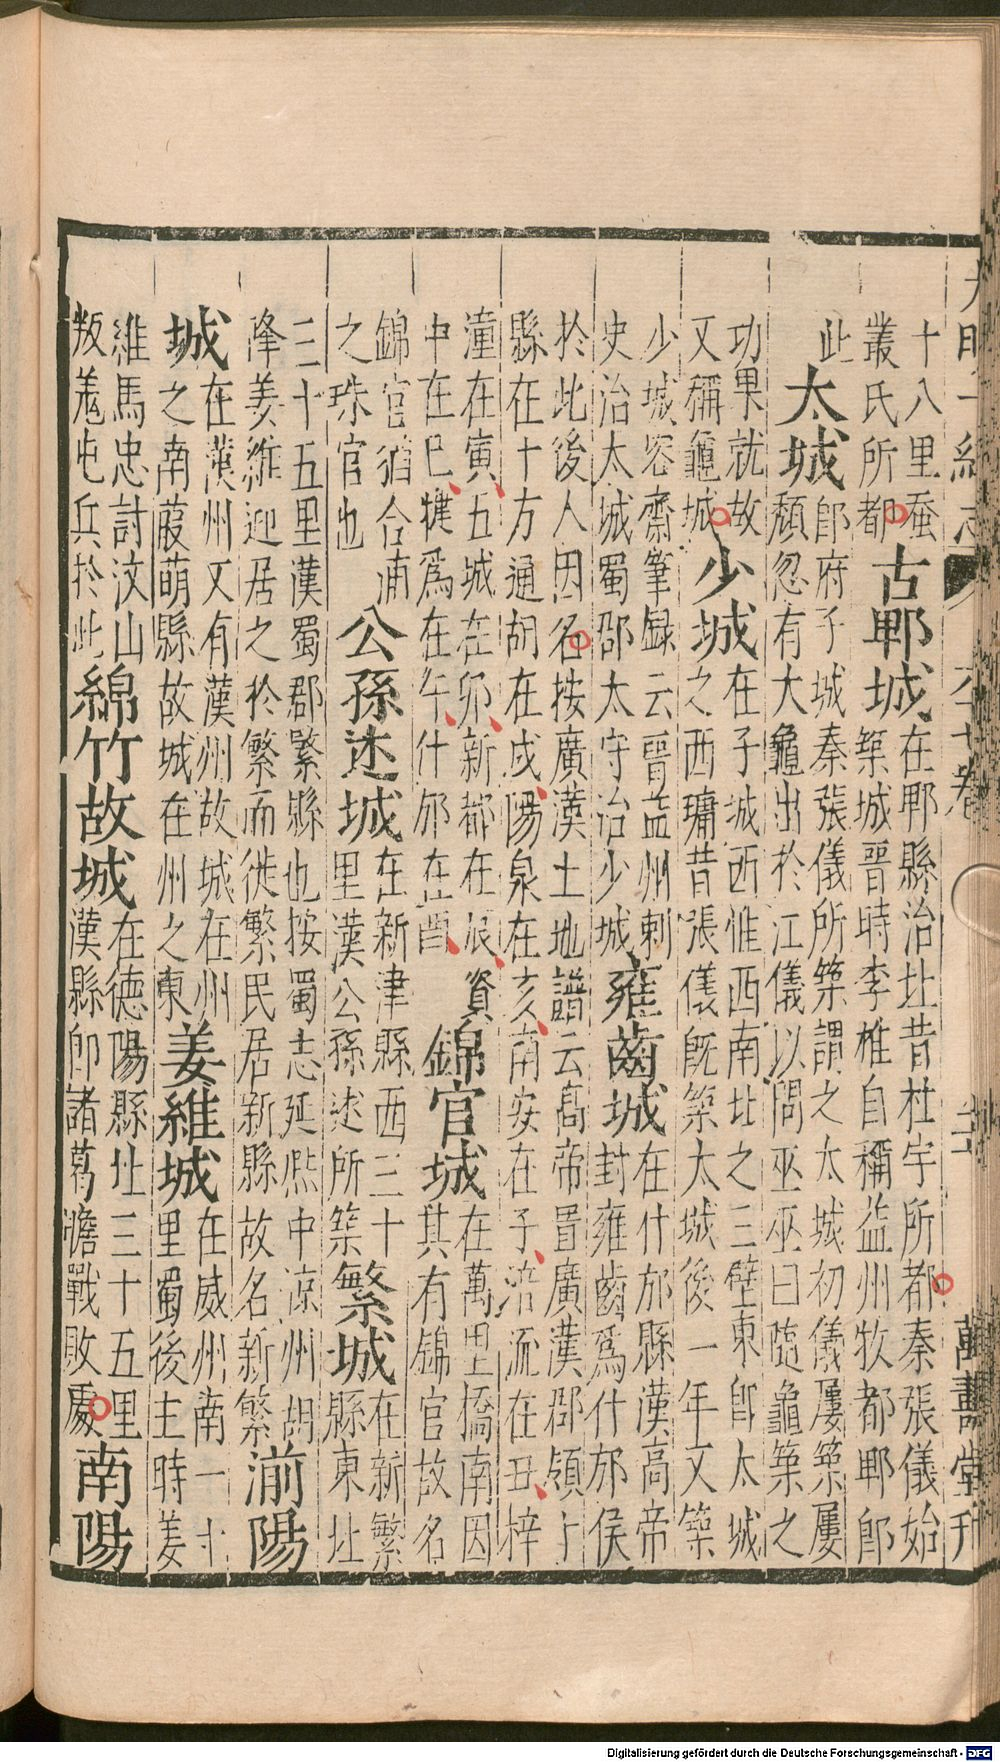 大明一統志 六十七卷 二十 萬壽堂刊
十八里蚕
叢氏所都
古郫城
在郫縣治北昔杜宇所都秦張儀始
築城晉時李雄自稱益州牧都郫即
此
太城
即府子城秦張儀所築謂之太城初儀屢築屢
頹忽有大龜出於江儀以問巫巫曰隨龜築之
功果就故
又稱龜城
少城
在子城西惟西南北之三壁東即太城
之西墉昔張儀既築太城後一年又築
少城容齋筆録云晉益州刺
史治太城蜀郡太守治少城
雍齒城
在什邡縣漢高帝
封雍齒爲什邡侯
於此後人因名按廣漢土地譜云高帝置廣漢郡領十
縣在十方通胡在戍陽泉在亥南安在子涪流在丑梓
潼在寅五城在卯新都在辰資
中在巳犍爲在午什邡在酉
錦官城
在萬里橋南因
其有錦官故名
錦官猶合浦
之珠官也
公孫述城
在新津縣西三十
里漢公孫述所築
繁城
在新繁
縣東北
三十五里漢蜀郡繁縣也按蜀志延熙中凉州胡
降姜維迎居之於繁而徙繁民居新縣故名新繁
湔陽
城
在漢州又有漢州故城在州
之南葭萌縣故城在州之東
姜維城
在威州南一十
里蜀後主時姜
維馬忠討汶山
叛羗屯兵於此
綿竹故城
在德陽縣北三十五里
漢縣即諸葛瞻戰敗處
南陽
Digitalisierung gefördert durch die Deutsche Forschungsgemeinschaft - DFG